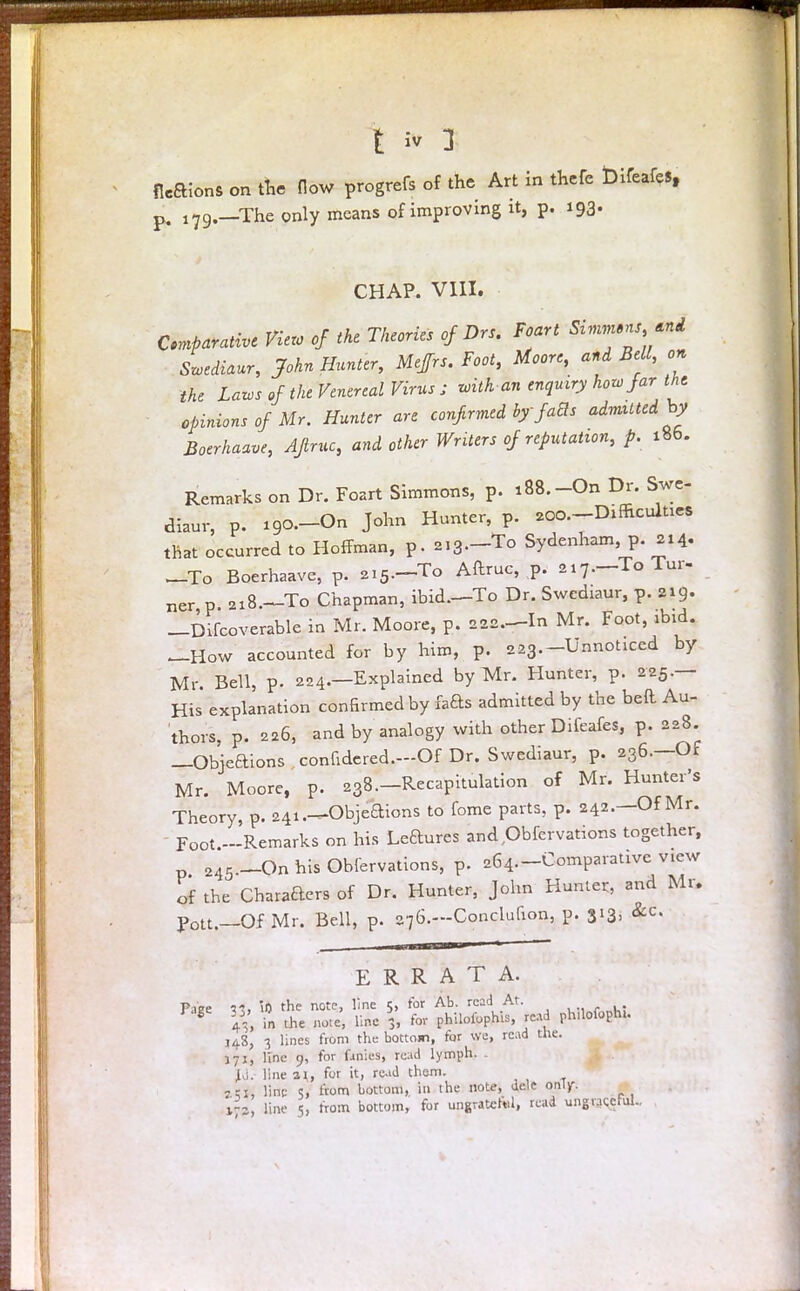 [ iv ]
flections on the ſlow progreſs of the Art in theſe Diſeaſes,
p. 179.—The only means of improving it, p. 193.
CHAP. VIII.
Comparative View of the Theories of Drs. Foart Simmons, and
Swediaur, John Hunter, Meſſrs. Foot, Moore, and Bell, on
the Laws of the Venereal Virus ; with an enquiry how far the
opinions of Mr. Hunter are confirmed by facts admitted by
Boerhaave, Aſtruc, and other Writers of reputation, p. 186.
Remarks on Dr. Foart Simmons, p. 188.—On Dr. Swe-
diaur, p. 190.—On John Hunter, p. 200.—Difficulties
that occurred to Hoffman, p. 213.—To Sydenham, p. 214.
—To Boerhaave, p. 215.—To Aſtruc, p. 217.—To Tur-
ner, p. 218.—To Chapman, ibid.—To Dr. Swediaur, p. 219.
—Diſcoverable in Mr. Moore, p. 222.—In Mr. Foot, ibid.
—How accounted for by him, p. 223.—Unnoticed by
Mr. Bell, p. 224.—Explained by Mr. Hunter, p. 225.—
His explanation confirmed by facts admitted by the beſt Au-
thors, p. 226, and by analogy with other Diſeaſes, p. 228.
—Objections conſidered.---Of Dr. Swediaur, p. 236.—Of
Mr. Moore, p. 238.—Recapitulation of Mr. Hunter's
Theory, p. 241.—Objections to ſome parts, p. 242.—Of Mr.
Foot.---Remarks on his Lectures and Obſervations together,
p. 245.—On his Obſervations, p. 264.—Comparative view
of the Characters of Dr. Hunter, John Hunter, and Mr.
Pott.—Of Mr. Bell, p. 276.---Concluſion, p. 313, &c.
ERRATA.
Page 33, in the note, line 5, for Ab. read At.
43, in the note, line 3, for philoſophis, read philoſophi.
148, 3 lines from the bottom, for we, read the.
171, line 9, for ſanies, read lymph.
Id. line 21, for it, read them.
251, line 5, from bottom, in the note, dele only.
172, line 5, from bottom, for ungrateful, read ungraceful.